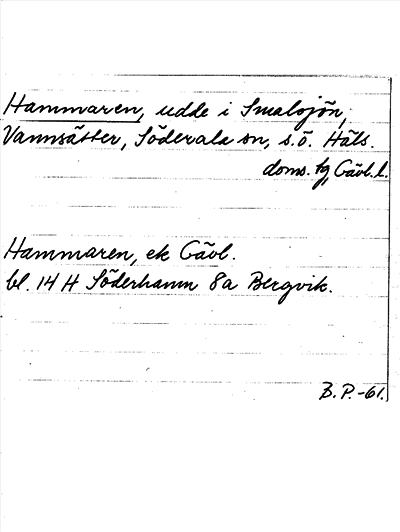 Hammaren, udde i Smalsjön,
Vannsätter, Söderala sn, s.ö. Häls.
doms. tg, Gävl. l.
Hammaren, ek Gävl.
bl. 14 H Söderhamn 8a Bergvik.
B. P.-61.